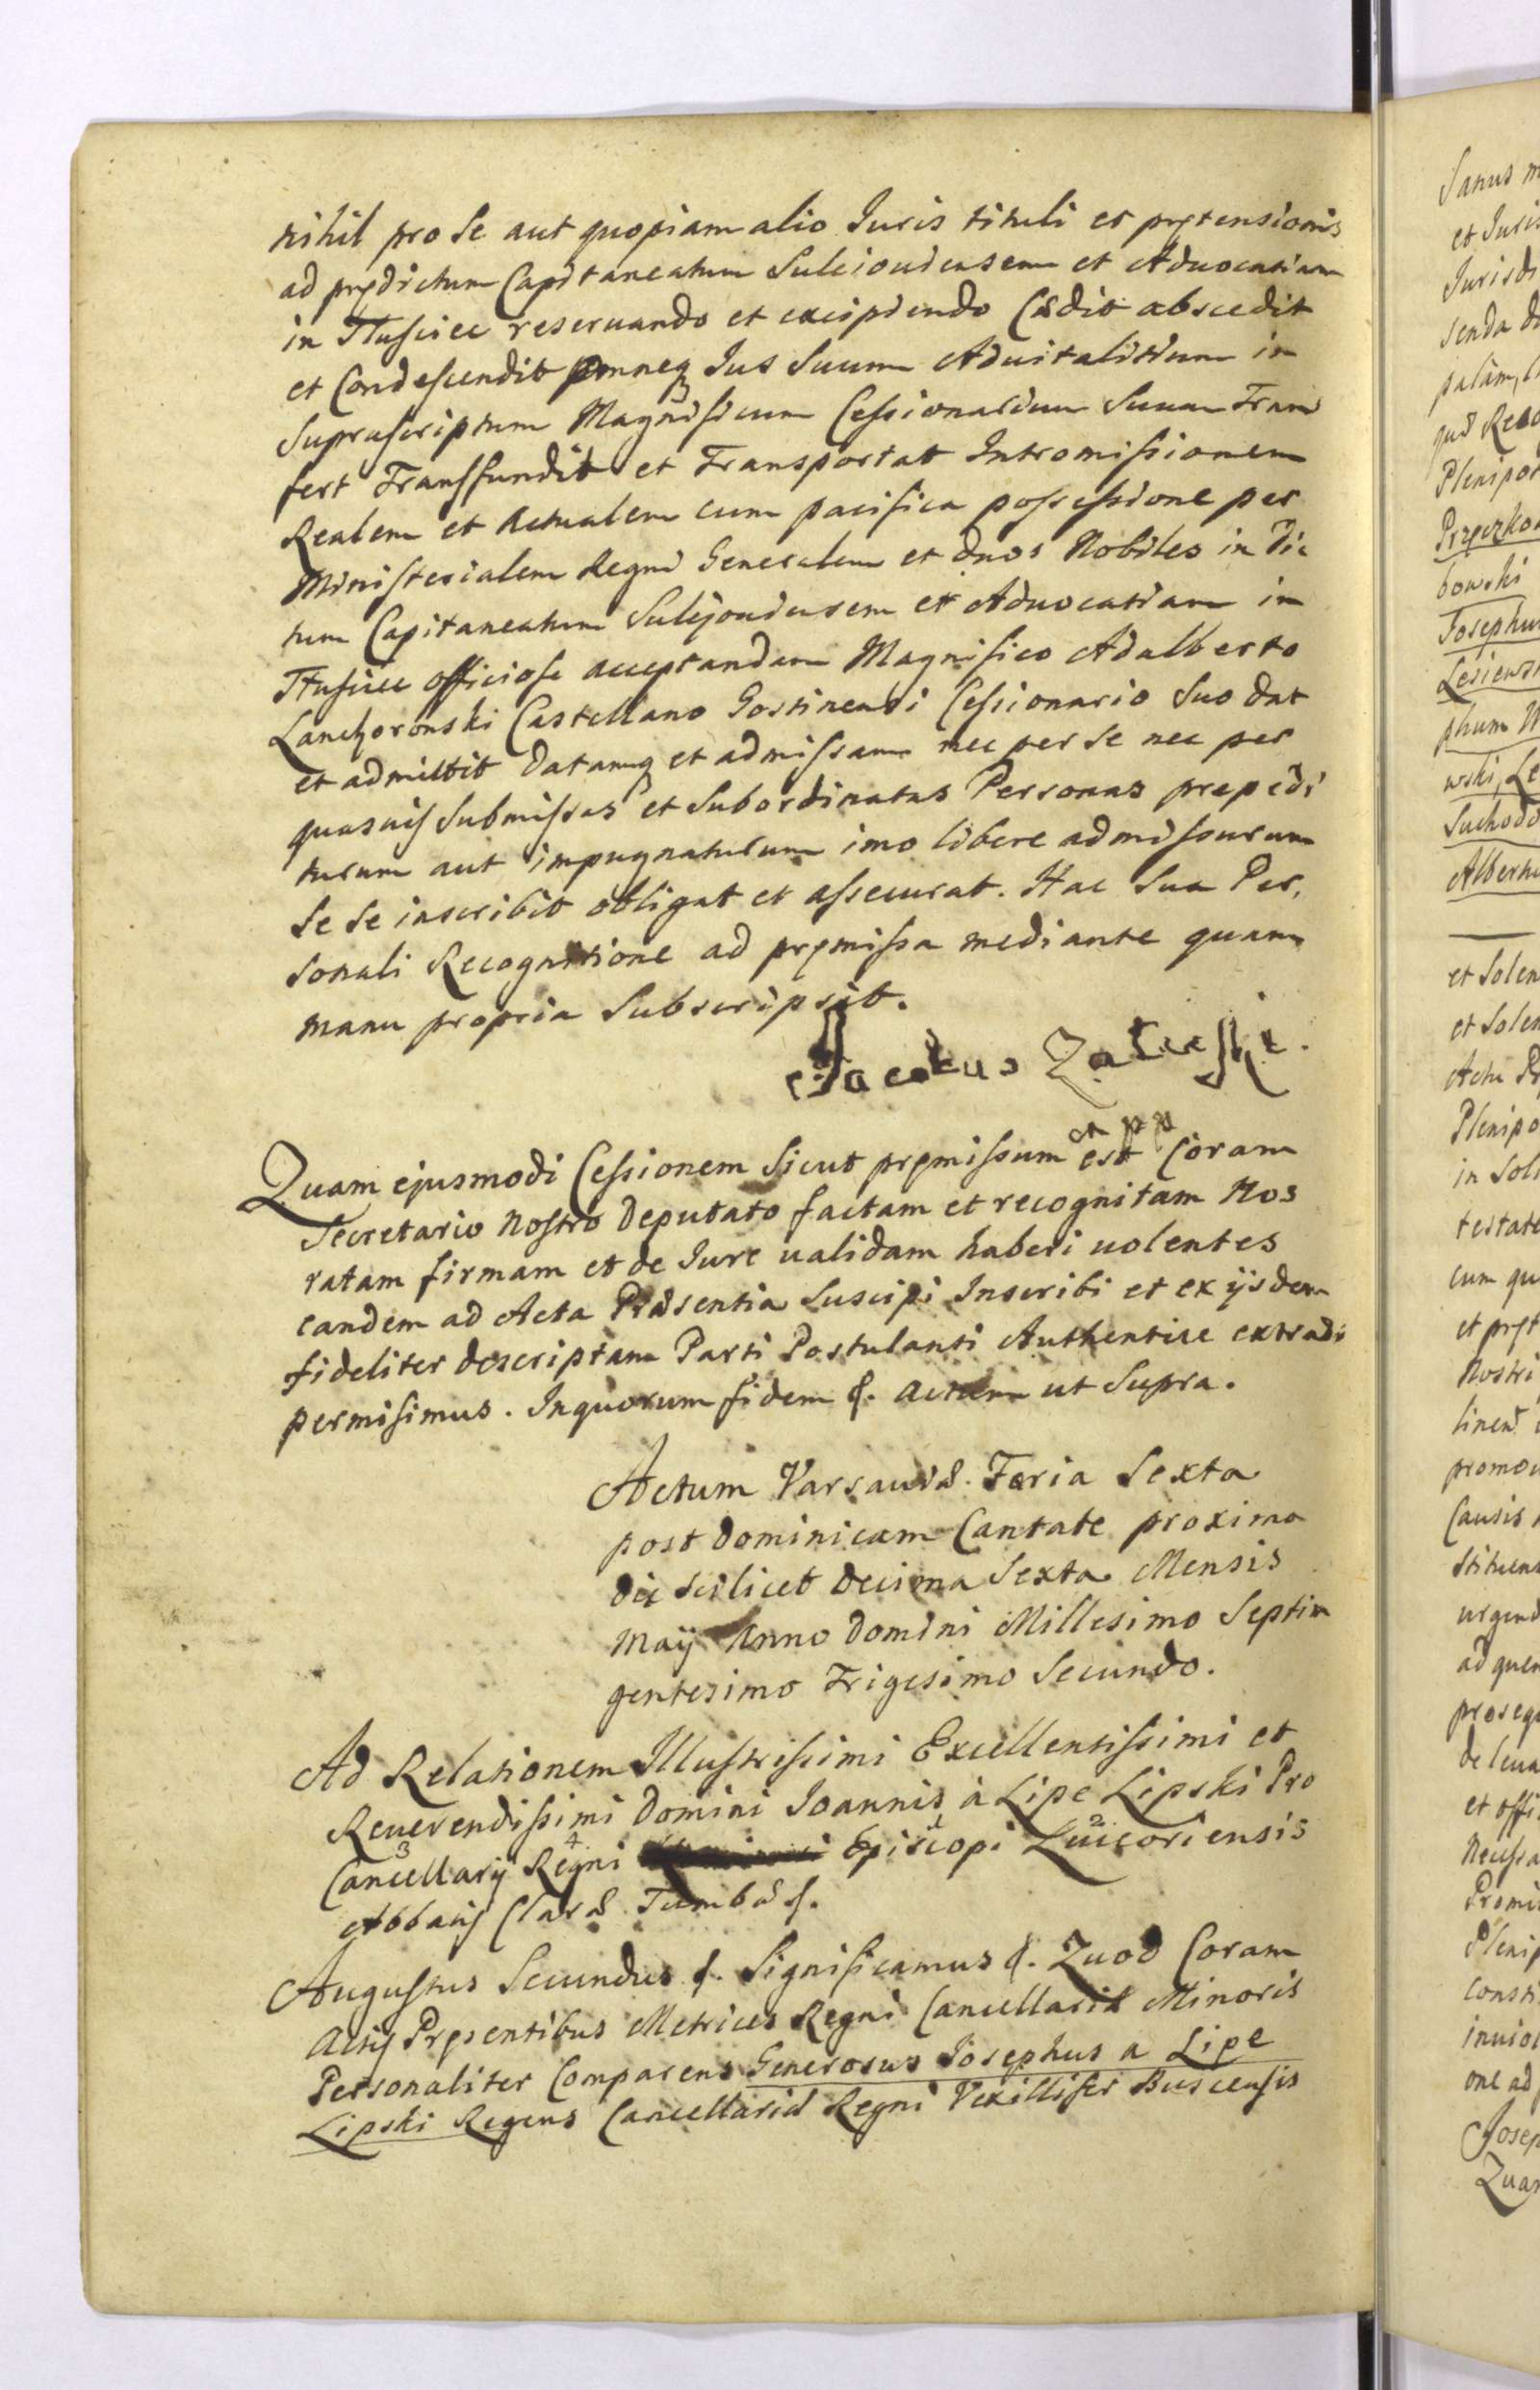 nihil pro se aut quopiam alio Iuris tituli et prętensionis
ad prędictum Capitaneatum Suleiouiensem et Aduocatiam
in Tłusciec reseruando et excipiendo Cedit abscedit
et Condescendit omneq Ius Suum Aduitalitium in
Suprascriptum Magnificum Cessionarium Suum Trans
fert Transfundit et Transportat Intromissionem
Realem et Actualem cum pacifica possessione per
Ministerialem Regni Generalem et duos Nobiles in Dic
tum Capitaneatum Sulejouiensem et Aduocatiam in
Tłuściec officiose acceptandam Magnifico Adalberto
Lanckoroński Castellano Gostinensi Cessionario Suo dat
et admittit Datamq et admissam nec per se nec per
quasuis Submissas et Subordinatas Personas prepedi
turum aut impugnaturum imo libere admissurum
Se Se inscribit obligat et assecurat. Hac Sua Per,
sonali Recognitione ad pręmissa mediante quam
manu propria Subscripsit.
Jacobus Zaleski.
Quam ejusmodi Cessionem Sicut pręmissum est Coram
Secretario Nostro Deputato factam et recognitam Nos
ratam firmam et de Iure ualidam haberi uolentes
eandem ad Acta Præsentia Suscipi Inscribi et ex ijsdem
fideliter descriptam Parti Postulanti Authentice extradi
permisimus. In quorum fidem &. actum ut Supra.
Actum Varsauiæ. Feria Sexta
post Dominicam Cantate proxima
die scilicet Decima Sexta Mensis
Maij Anno Domini Millesimo Septin
gentesimo Trigesimo Secundo.
Ad Relationem Illustrissimi Excellentissimi et
Reuerendissimi Domini Ioannis à Lipe Lipski Pro
3 4 1 2
Cancellarij Regni Episcopi Luceoriensis
Abbatis Claræ Tumbæ &.
Augustus Secundus &. Significamus &. Quod Coram
Actis Pręsentibus Metrices Regni Cancellariæ Minoris
Personaliter Comparens Generosus Iosephus a Lipe
Lipski Regens Cancellariæ Regni Vexillifer Buscensis
Sanus m
et Iuris
Iurisdi
senda
palam,
quod Reco
Plenipot
bowski
Josephu
Lesiews
phum
wski, Le
Suchodo
Albertu
et Solen
et Solen
Actu
Plenipo
in Soli
testate
cum qu
et pręt
Nostri
promou
Causis
stituens
urgend
ad quem
prosequ
de leua
et offi
Necessa
Promi
Plenip
Consti
inuiol
one ad
Josep
Quam